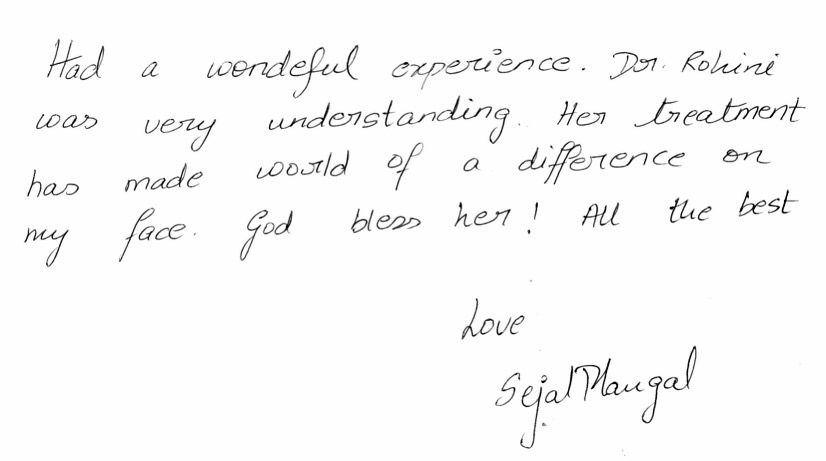 Had a wondeful experience. Dr. Rohini
was very understanding. Her treatment
has made world of a difference on
my face. God bless her! All the best
Love
Sejal Mangal